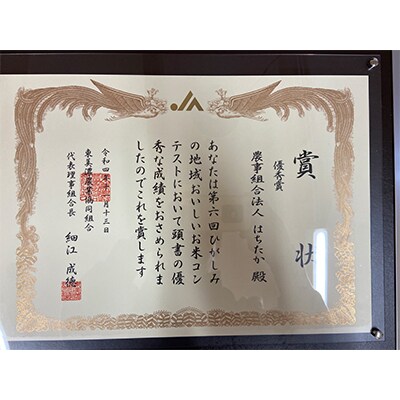 JA
賞状
優秀賞
農事組合法人 はちたか 殿
あなたは第六回ひがしみ
の地域おいしいお米コン
テストにおいて頭書の優
秀な成績をおさめられま
したのでこれを賞します
令和四年十一月十三日
東美濃農業協同組合
代表理事組合長 細江 成徳